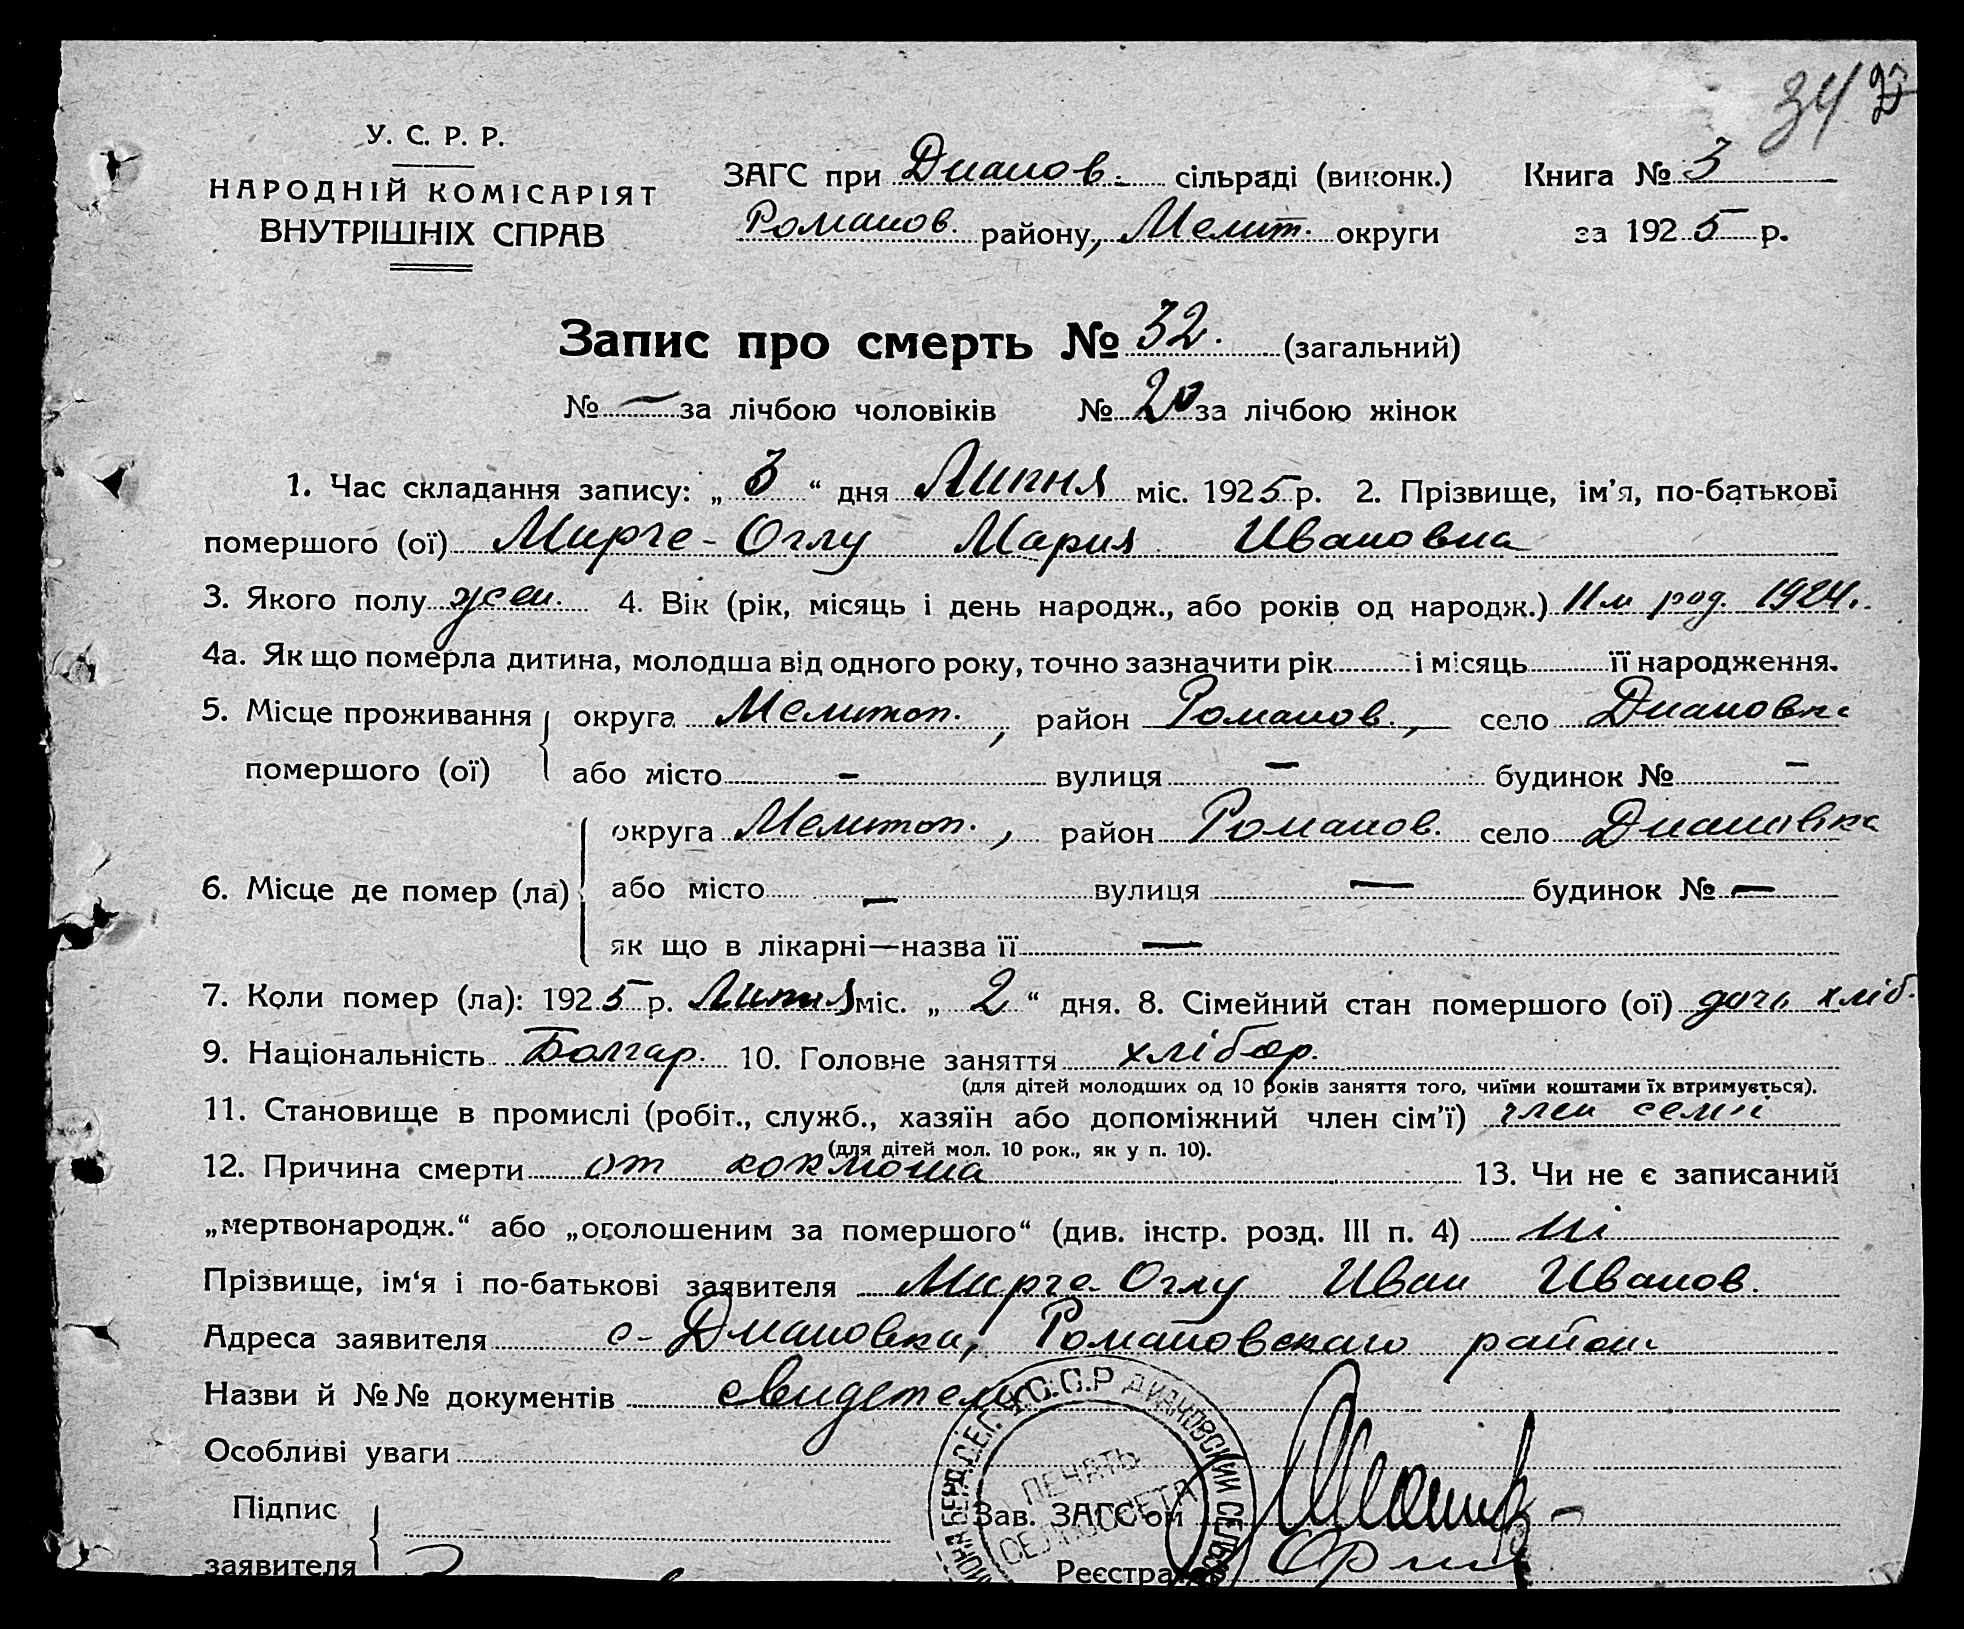 34
У. С. Р. Р.
НАРОДНІЙ КОМІСАРІЯТ
ВНУТРІШНІХ СПРАВ
ЗАГС при Дианов. сільраді (виконк.) Книга № 3
Романов. району, Мелит. округи за 1925 р.
Запис про смерть № 32. (загальний)
№ — за лічбою чоловіків № 20 за лічбою жінок
1. Час складання запису: „ 3 “ дня Липня міс. 1925 р. 2. Прізвище, ім'я, по-батькові
помершого (ої) Мирге-Оглу Мария Ивановна
3. Якого полу жен. 4. Вік (рік, місяць і день народж., або років од народж.) 11 м род. 1924.
4а. Як що померла дитина, молодша від одного року, точно зазначити рік і місяць її народження.
5. Місце проживання округа Мелитоп., район Романов., село Диановка
помершого (ої) або місто - вулиця — будинок № —
округа Мелитоп., район Романов. село Диановка
6. Місце де помер (ла) або місто — вулиця — будинок № —
як що в лікарні—назва її —
7. Коли помер (ла): 1925 р. Липня міс. „ 2 “ дня. 8. Сімейний стан помершого (ої) дочь хліб.
9. Національність Болгар. 10. Головне заняття хлібор.
(для дітей молодших од 10 років заняття того, чиїми коштами їх втримується).
11. Становище в промислі (робіт., служб., хазяїн або допоміжний член сім'ї) член семи
(для дітей мол. 10 рок., як у п. 10).
12. Причина смерти от коклюша 13. Чи не є записаний
„мертвонародж.“ або „оголошеним за помершого“ (див. інстр. розд. III п. 4) ні
Прізвище, ім'я і по-батькові заявителя Мирге-Оглу Иван Иванов.
Адреса заявителя с-Диановка, Романовскаго района
Назви й №№ документів свидетели
Особливі уваги
Підпис
заявителя
Зав. ЗАГС'ом
Реєстратор
У.С.С.Р ДИАНОВСКИЙ СЕЛЬСО
ПЕЧАТЬ
СЕЛЬСОВЕТА